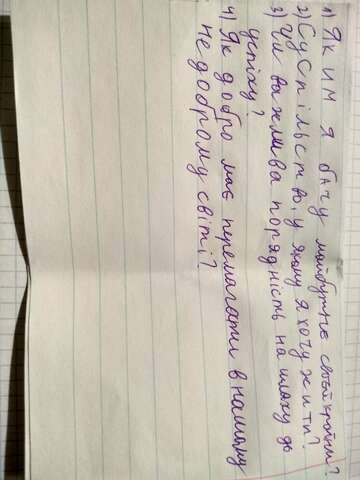 1) Яким я бачу майбутнє своєї країни?
2) Суспільство, у якому я хочу жити?
3) Чи важлива порядність на шляху до
успіху?
4) Як добро має перемагати в нашому
недоброму світі?